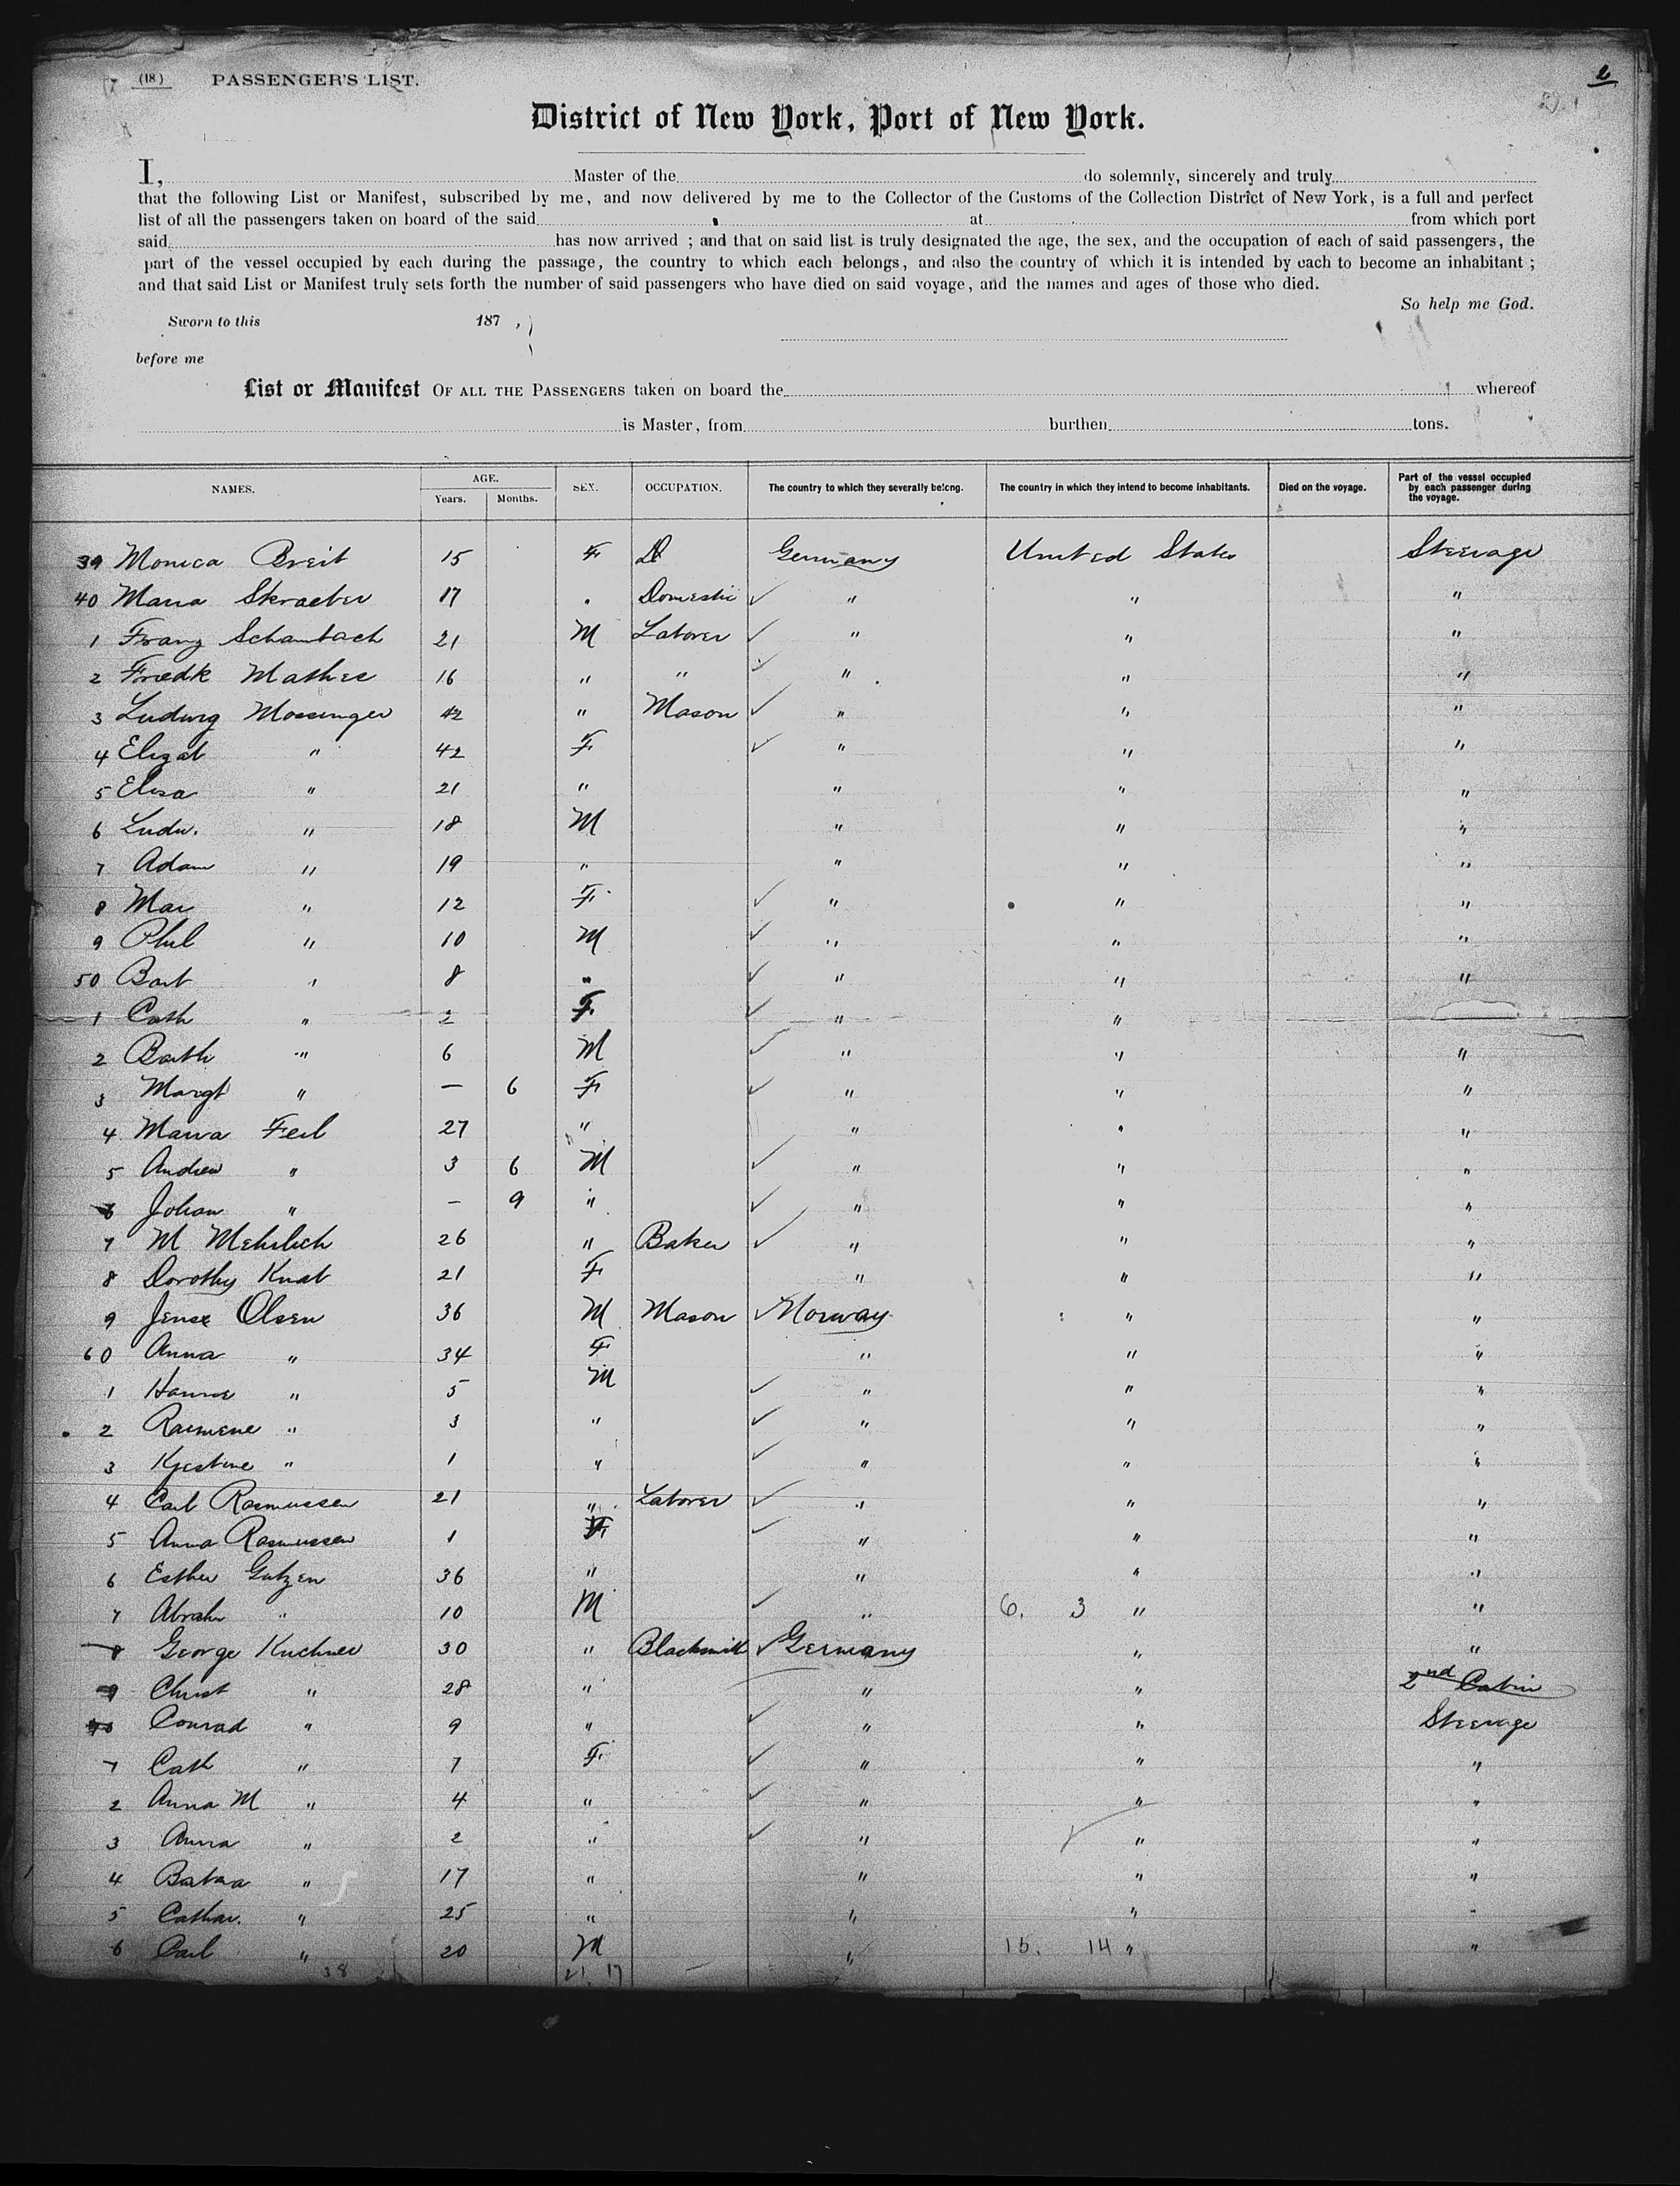 (18) PASSENGER'S LIST. 2
District of New York, Port of New York.
I, Master of the do solemnly, sincerely and truly
that the following List or Manifest, subscribed by me, and now delivered by me to the Collector of the Customs of the Collection District of New York, is a full and perfect
list of all the passengers taken on board of the said at from which port
said has now arrived ; and that on said list is truly designated the age, the sex, and the occupation of each of said passengers, the
part of the vessel occupied by each during the passage, the country to which each belongs, and also the country of which it is intended by each to become an inhabitant ;
and that said List or Manifest truly sets forth the number of said passengers who have died on said voyage, and the names and ages of those who died.
So help me God.
Sworn to this 187 ,
before me
List or Manifest OF ALL THE PASSENGERS taken on board the whereof
is Master, from burthen tons.
NAMES. AGE. Years. Months. SEX. OCCUPATION. The country to which they severally belong. The country in which they intend to become inhabitants. Died on the voyage. Part of the vessel occupied by each passenger during the voyage.
39 Monica Breit 15 F Germany United States Steerage
40 Maria Skraeber 17 Domestic " " "
1 Franz Schambach 21 M Laborer " " "
2 Friedk Mathes 16 " " " " "
3 Ludwig Mossinger 42 " Mason " " "
4 Elizab " 42 F " " "
5 Elisa " 21 " " " "
6 Ludw. " 18 M " " "
7 Adam " 19 " " " "
8 Mar " 12 F " " "
9 Phil " 10 M " " "
50 Barb " 8 " " " "
1 Cath " 2 F " "
2 Barth " 6 M " " "
3 Margt " — 6 F " " "
4 Maria Feil 27 " " " "
5 Andrew " 3 6 M " " "
6 Johan " — 9 " " " "
7 M Mehrlich 26 " Baker " " "
8 Dorothy Knab 21 F " " "
9 Jense Olsen 36 M Mason Norway " "
60 Anna " 34 F " " "
1 Hanne " 5 M " " "
2 Rasmene " 3 " " " "
3 Kjestine " 1 " " " "
4 Carl Rasmussen 21 " Laborer " " "
5 Anna Rasmussen 1 F " " "
6 Esther Gutzen 36 " " " "
7 Abrahm " 10 M " 6. 3 " "
8 George Kuchner 30 " Blacksmith Germany " "
9 Christ " 28 " " " 2nd Cabin
70 Conrad " 9 " " " Steerage
7 Cath " 7 F " " "
2 Anna M " 4 " " " "
3 Anna " 2 " " " "
4 Barbara " 17 " " " "
5 Cathar. " 25 " " " "
6 Carl " 20 M " 15. 14 " "
38 21 17